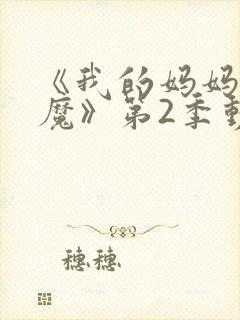 《我的妈妈
魔》第2季
穗穗